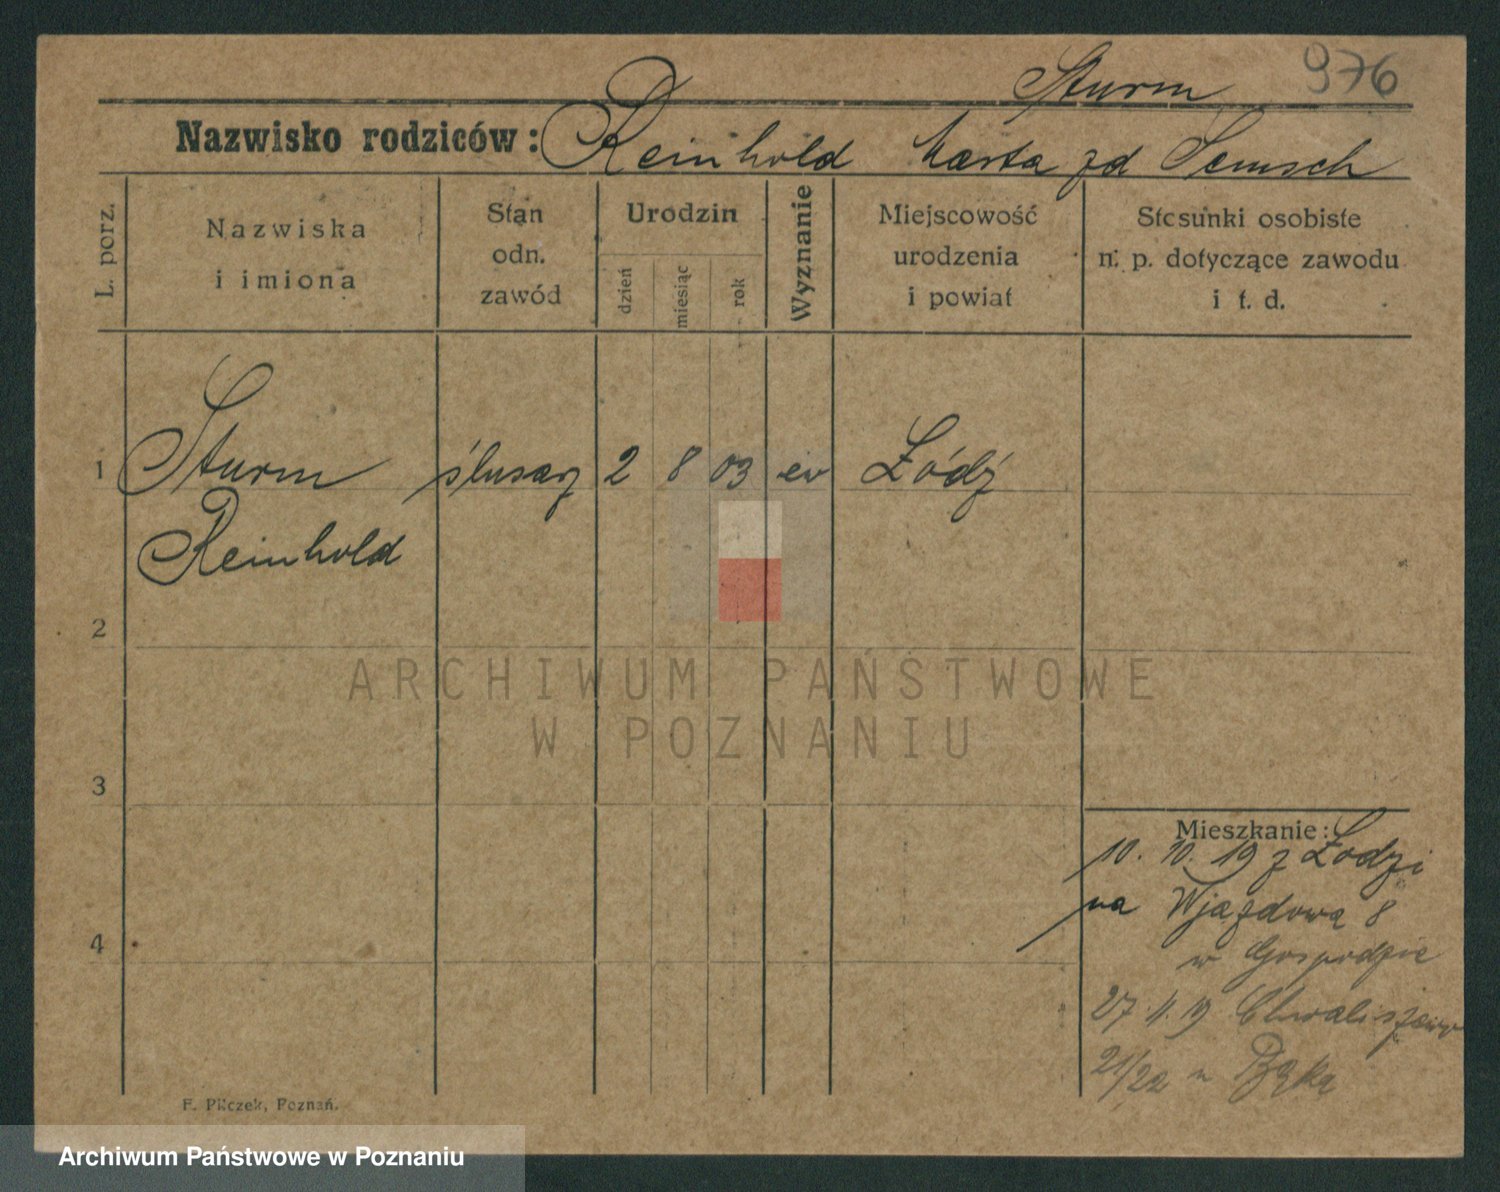 Sturm 976
Nazwisko rodziców: Reinhold Marta zd
L. porz.
Nazwiska i imiona
Stan odn. zawód
Urodzin
dzień
miesiąc
rok
Wyznanie
Miejscowość urodzenia i powiat
Stosunki osobiste n. p. dotyczące zawodu i t. d.
1 Sturm ślusarz 2 8 03 ew Łódź
Reinhold
2
3
4
Mieszkanie:
10. 10. 19 z Łodzi
na Wjazdową 8
w Gospodzie
27. 11. 19 Chwaliszewo
21/22 u
F. Pilczek, Poznań.
ARCHIWUM PAŃSTWOWE
W POZNANIU
Archiwum Państwowe w Poznaniu